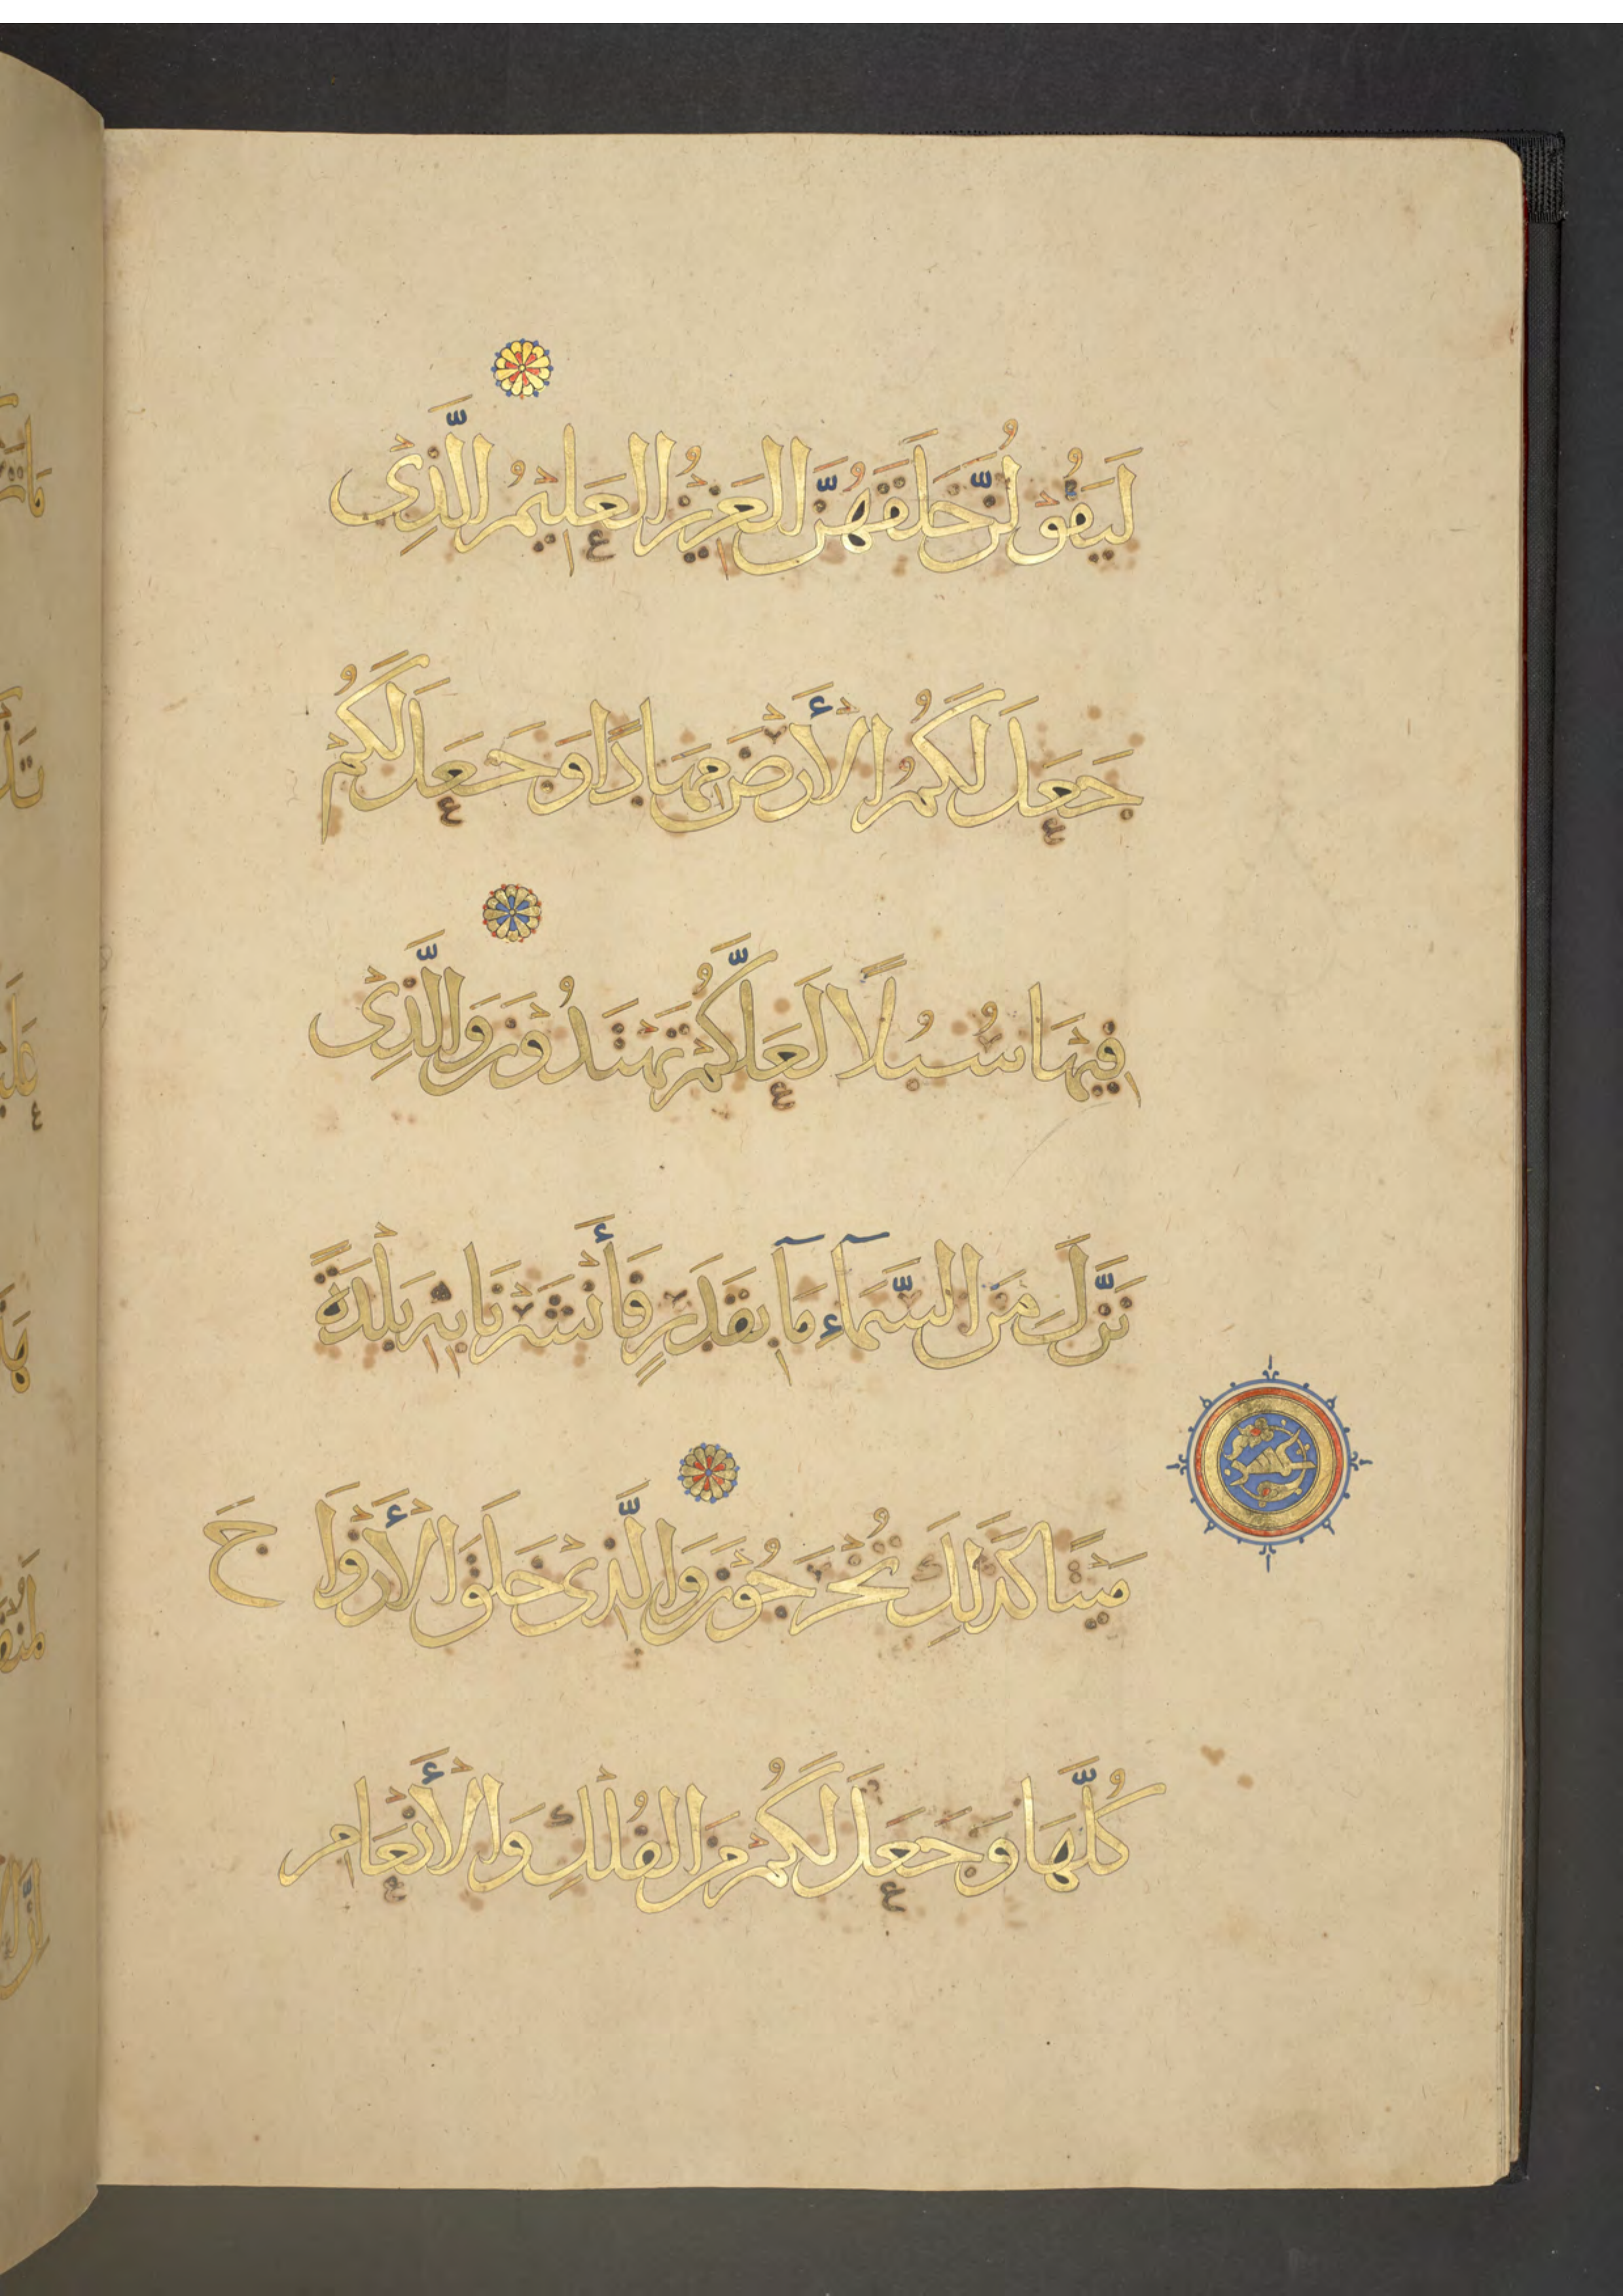 لَيَقُولُنَّ خَلَقَهُنَّ الْعَزِيزُ الْعَلِيمُ الَّذِي
جَعَلَ لَكُمُ الْأَرْضَ مِهَادًا وَجَعَلَ لَكُمْ
فِيهَا سُبُلًا لَعَلَّكُمْ تَهْتَدُونَ وَالَّذِي
نَزَّلَ مِنَ السَّمَاءِ مَآ بِقَدَرٍ فَأَنْشَرْنَا بِهِ بَلْدَةً
مَيْتًا كَذَلِكَ تُخْرَجُونَ وَالَّذِي خَلَقَ الْأَزْوَا جَ
كُلَّهَا وَجَعَلَ لَكُمْ مِنَ الْفُلْكِ وَالْأَنْعَامِ